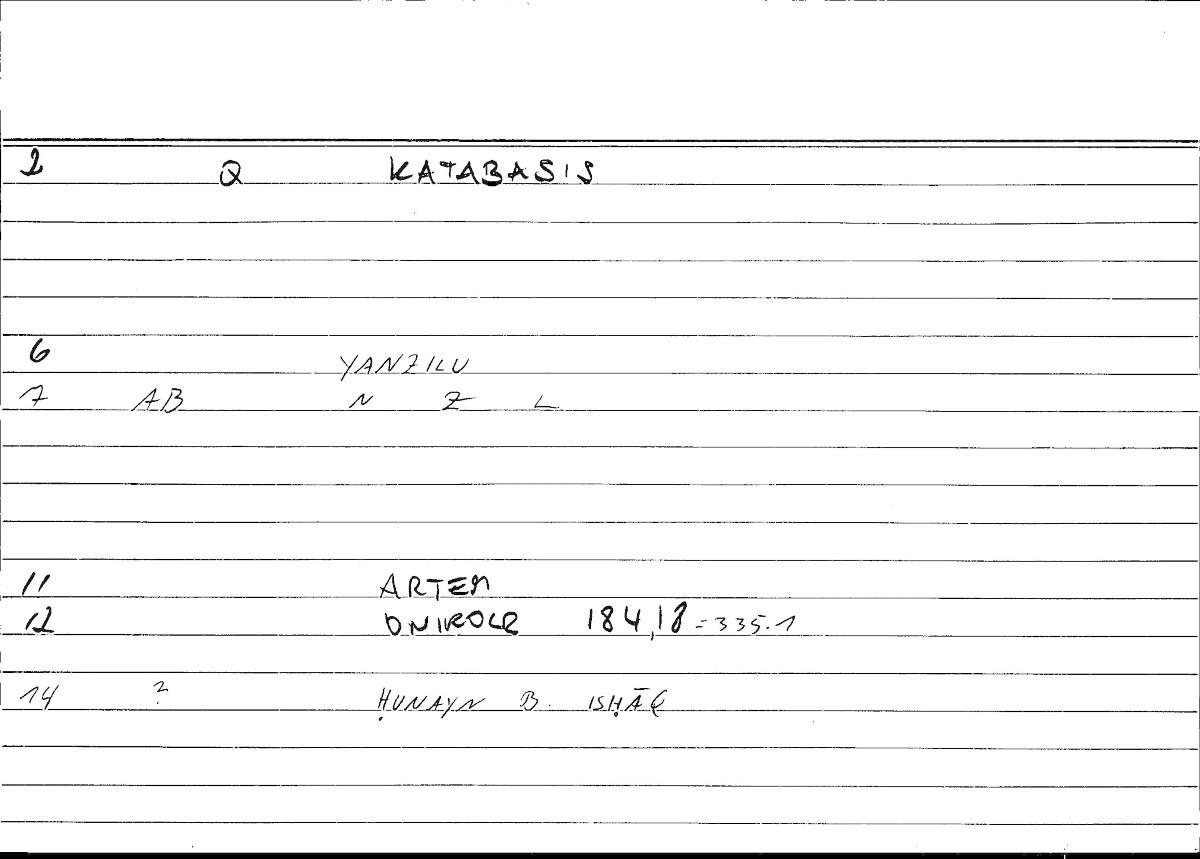 2 Q KATABASIS
6 YANZILU
7 AB N Z L
11 ARTEM
12 ONIROCR 184,18 = 335.1
14 ? ḤUNAYN B. ISḤĀQ